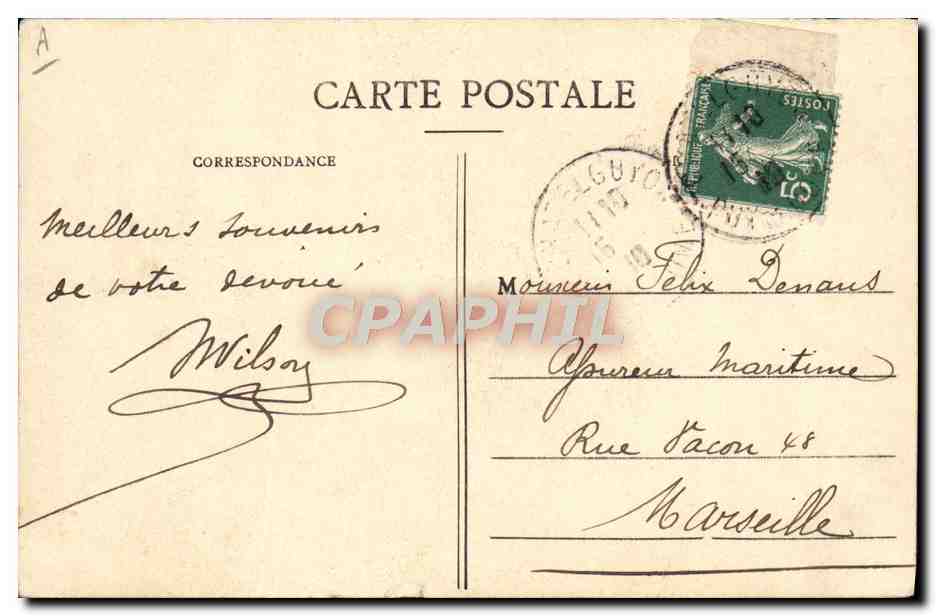 A
CARTE POSTALE
CORRESPONDANCE
RÉPUBLIQUE FRANÇAISE
POSTES
5c
Meilleurs souvenirs
de votre dévoué
Wilson
CPAPHIL
Monsieur Felix Denans
Assureur Maritime
Rue Vacon 48
Marseille